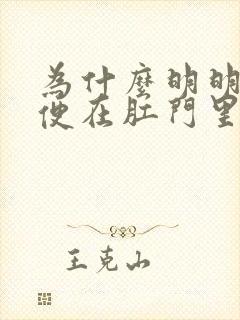 為什麼明明
便在肛門里
王克山